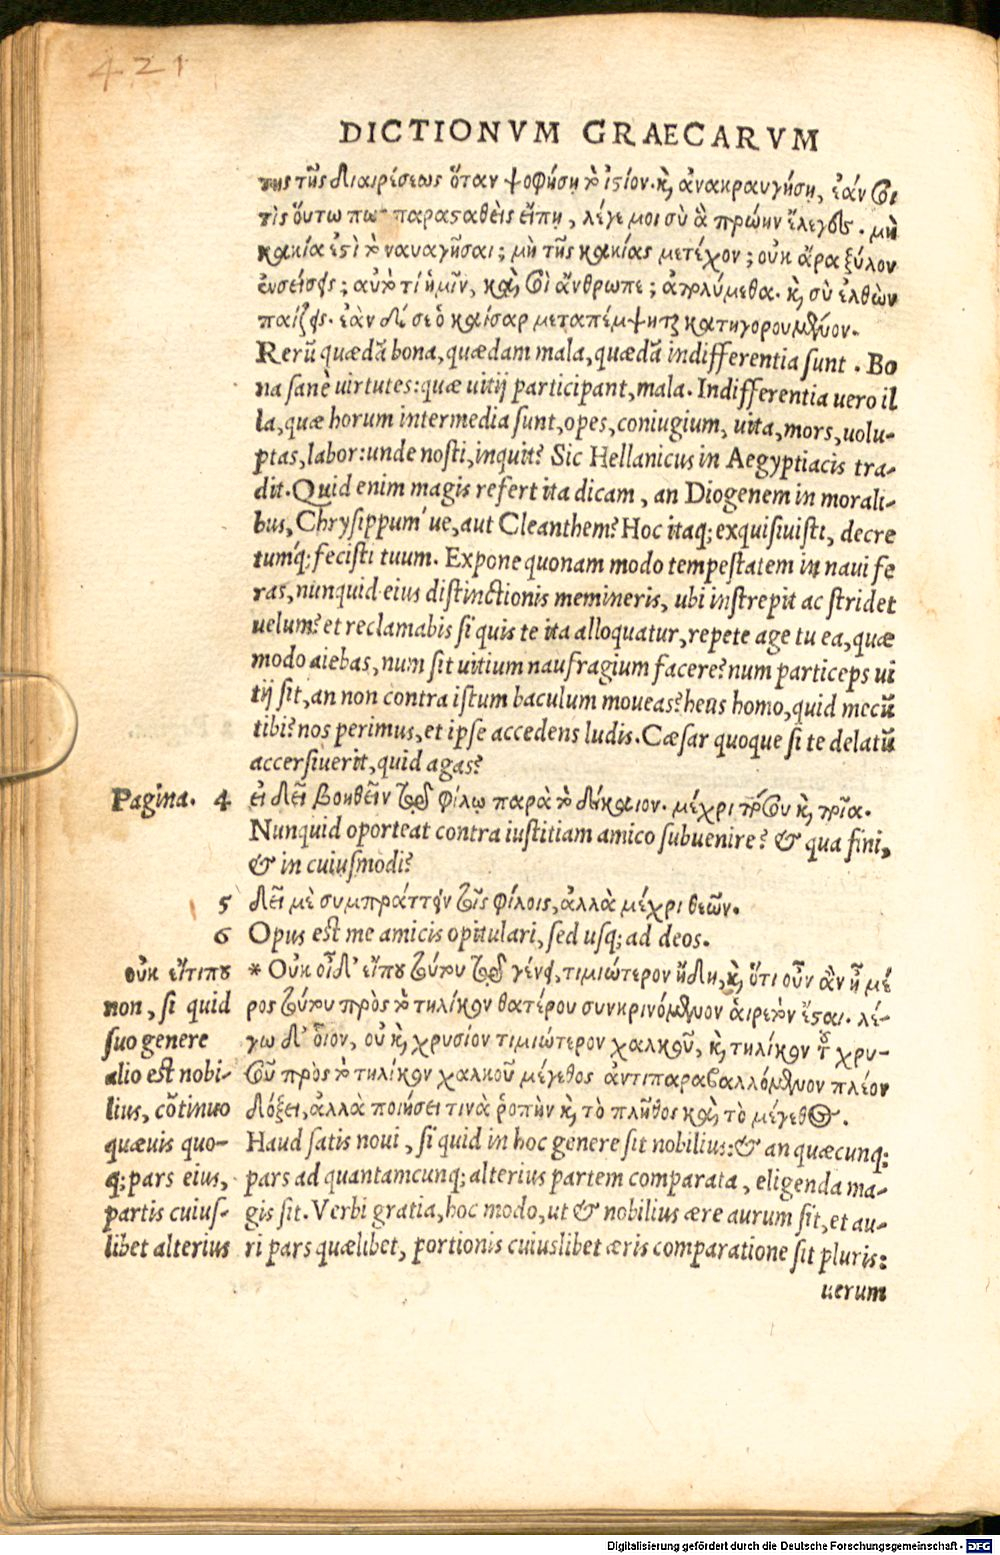 421
DICTIONVM GRAECARVM
της τῆς διαιρέσεως ὅταν ψοφήσῃ τὸ ἱςίον. κὶ ἀνακραυγήσῃ, ἐάν σοι
τὶς ὅυτω πω παραςαθεὶς εἴπῃ, λέγε μοι σὺ ἃ πρώην ἔλεγες. μὴ
κακία ἐςὶ τὸ ναυαγῆσαι; μὴ τῆς κακίας μετέχον; οὐκ ἄρα ξύλον
ἐνσείσεις; αὐτὸ τί ἡμῖν, καὶ σοὶ ἄνθρωπε; ἀπολύμεθα. κὶ σὺ ἐλθὼν
παίζεις. ἐὰν δέ σε ὁ καίσαρ μεταπέμψηται κατηγορουμενον.
Rerũ quædã bona, quædam mala, quædã indifferentia sunt. Bo
na sanè uirtutes: quæ uitij participant, mala. Indifferentia uero il
la, quæ horum intermedia sunt, opes, coniugium, uita, mors, uolu-
ptas, labor: unde nosti, inquit? Sic Hellanicus in Aegyptiacis tra-
dit. Quid enim magis refert ita dicam, an Diogenem in morali-
bus, Chrysippum´ue, aut Cleanthem? Hoc itaq; exquisiuisti, decre
tum´q; fecisti tuum. Expone quonam modo tempestatem in naui fe
ras, nunquid eius distinctionis memineris, ubi instrepit ac stridet
uelum? et reclamabis si quis te ita alloquatur, repete age tu ea, quæ
modo aiebas, num sit uitium naufragium facere? num particeps ui
tij sit, an non contra istum baculum moueas? heus homo, quid mecũ
tibi? nos perimus, et ipse accedens ludis. Cæsar quoque si te delatũ
accersiuerit, quid agas?
Pagina. 4 εἰ δεῖ βοηθεῖν τῷ φίλῳ παρὰ τὸ δίκαιον. μέχρι πόσου κὶ ποῖα.
Nunquid oporteat contra iustitiam amico subuenire? & qua fini,
& in cuiusmodi?
5 δεῖ μὲ συμπράττειν τοῖς φίλοις, ἀλλὰ μέχρι θεῶν.
6 Opus est me amicis opitulari, sed usq; ad deos.
οὐκ εἴτιπου
non, si quid
suo genere
alio est nobi-
lius, cõtinuo
quæuis quo-
q; pars eius,
partis cuius-
libet alterius
* Οὐκ οἶδ' εἴπου τούτου τῷ γένει, τιμιώτερον ἤδη, κὶ ὅτι οὖν ἂν ᾖ μέ
ρος τούτου πρὸς τὸ τηλίκον θατέρου συνκρινόμενον ἁιρετὸν ἔςαι. λέ-
γω δ' ὅιον, οὐ κὶ χρυσίον τιμιώτερον χαλκοῦ, κὶ τηλίκον τοῦ χρυ-
σοῦ πρὸς τὸ τηλίκον χαλκοῦ μέγεθος ἀντιπαραβαλλόμενον πλέον
δόξει, ἀλλὰ ποιήσει τινὰ ῥοπὴν κὶ τὸ πλῆθος καὶ τὸ μέγεθος.
Haud satis noui, si quid in hoc genere sit nobilius: & an quæcunq;
pars ad quantamcunq; alterius partem comparata, eligenda ma-
gis sit. Verbi gratia, hoc modo, ut & nobilius ære aurum sit, et au-
ri pars quælibet, portionis cuiuslibet æris comparatione sit pluris:
uerum
Digitalisierung gefördert durch die Deutsche Forschungsgemeinschaft - DFG